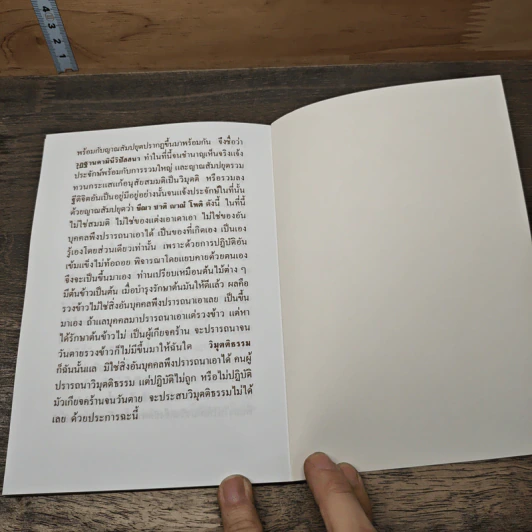 4 3 2 1
พร้อมกับญาณสัมปยุตปรากฏขึ้นมาพร้อมกัน จึงชื่อว่า
วุฏฐานคามินีวิปัสสนา ทำในที่นี้จนชำนาญเห็นจริงแจ้ง
ประจักษ์พร้อมกับการรวมใหญ่ และญาณสัมปยุตรวม
ทวนกระแสแก้อนุสัยสมมติเป็นวิมุตติ หรือรวมลง
ฐีติจิตอันเป็นอยู่มีอยู่อย่างนั้นจนแจ้งประจักษ์ในที่นั้น
ด้วยญาณสัมปยุตว่า ขีณา ชาติ ญาณํ โหติ ดังนี้ ในที่นี้
ไม่ใช่สมมติ ไม่ใช่ของแต่งเอาเดาเอา ไม่ใช่ของอัน
บุคคลพึงปรารถนาเอาได้ เป็นของที่เกิดเอง เป็นเอง
รู้เองโดยส่วนเดียวเท่านั้น เพราะด้วยการปฏิบัติอัน
เข้มแข็งไม่ท้อถอย พิจารณาโดยแยบคายด้วยตนเอง
จึงจะเป็นขึ้นมาเอง ท่านเปรียบเหมือนต้นไม้ต่าง ๆ
มีต้นข้าวเป็นต้น เมื่อบำรุงรักษาต้นมันให้ดีแล้ว ผลคือ
รวงข้าวไม่ใช่สิ่งอันบุคคลพึงปรารถนาเอาเลย เป็นขึ้น
มาเอง ถ้าแลบุคคลมาปรารถนาเอาแต่รวงข้าว แต่หา
ได้รักษาต้นข้าวไม่ เป็นผู้เกียจคร้าน จะปรารถนาจน
วันตายรวงข้าวก็ไม่มีขึ้นมาให้ฉันใด วิมุตติธรรม
ก็ฉันนั้นแล มิใช่สิ่งอันบุคคลพึงปรารถนาเอาได้ คนผู้
ปรารถนาวิมุตติธรรม แต่ปฏิบัติไม่ถูก หรือไม่ปฏิบัติ
มัวเกียจคร้านจนวันตาย จะประสบวิมุตติธรรมไม่ได้
เลย ด้วยประการฉะนี้